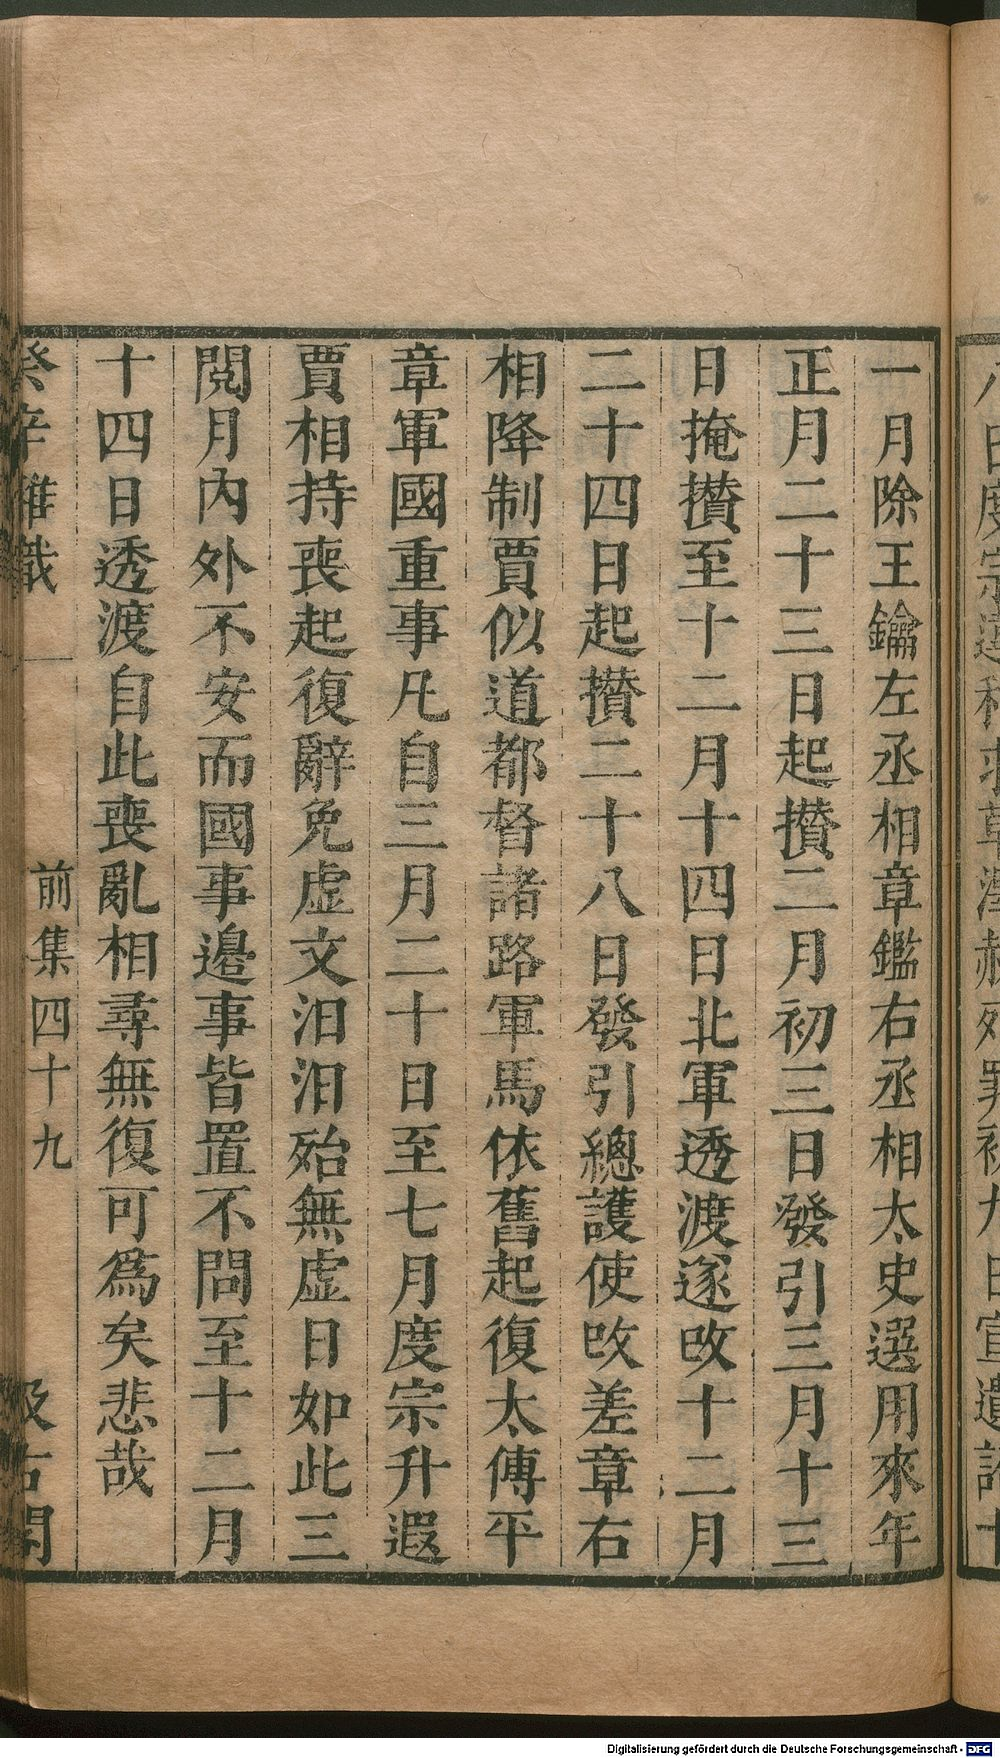 一月除王鑰左丞相章鑑右丞相太史選用來年
正月二十三日起攢二月初三日發引三月十三
日掩攢至十二月十四日北軍透渡遂改十二月
二十四日起攢二十八日發引總護使改差章右
相降制賈似道都督諸路軍馬依舊起復太傅平
章軍國重事凡自三月二十日至七月度宗升遐
賈相持喪起復辭免虛文汨汨殆無虛日如此三
閱月內外不安而國事邉事皆置不問至十二月
十四日透渡自此喪亂相尋無復可爲矣悲哉
癸辛雜識
前集四十九
汲古閣
Digitalisierung gefördert durch die Deutsche Forschungsgemeinschaft - DFG